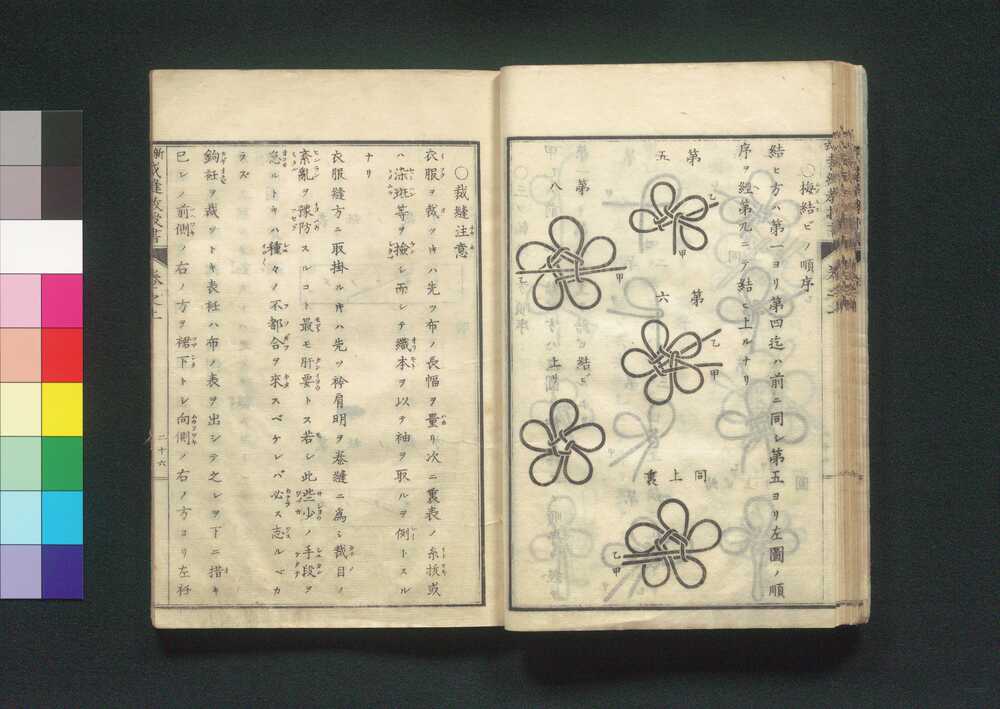 〇梅結ビノ順序
結ヒ方ハ第一ヨリ第四迄ハ前ニ同シ第五ヨリ左圖ノ順
序ヲ經第九ニテ結ヒ上ルナリ
第五
乙
甲
第六
乙
甲
同上裏
乙
甲
第八
甲
乙
結ビ上リ
〇裁縫注意
衣服ヲ裁ツキハ先ツ布ノ長幅ヲ量リ次ニ裏表ノ糸拔或
ハ染斑等ヲ撿シ而シテ織本ヲ以テ袖ヲ取ルヲ例トスル
ナリ
衣服縫方ニ取掛ルキハ先ツ衿肩明ヲ卷縫ニ爲シ裁目ノ
紊亂ヲ豫防スルコト最モ肝要トス若シ此些少ノ手段ヲ
怠ルトキハ種々ノ不都合ヲ來スベケレバ必ス志ルベカ
ラズ
鉤衽ヲ裁ツトキ表衽ハ布ノ表ヲ出シテ之レヲ下ニ措キ
已レノ前側ノ右ノ方ヲ裾下トレ向側ノ右ノ方ヨリ左衽
二十六